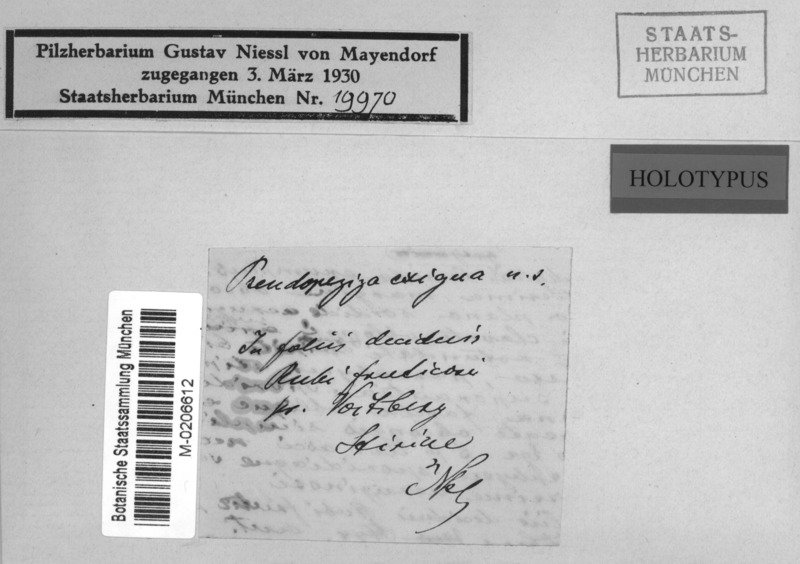 Pilzherbarium Gustav Niessl von Mayendorf
zugegangen 3. März 1930
Staatsherbarium München Nr. 19970
STAATS-
HERBARIUM
MÜNCHEN
HOLOTYPUS
Botanische Staatssammlung München
M-0206612
Pseudopeziza exigua n. s.
In foliis deciduis
Rubi fruticosi
pr. Voitsberg
Stiriae